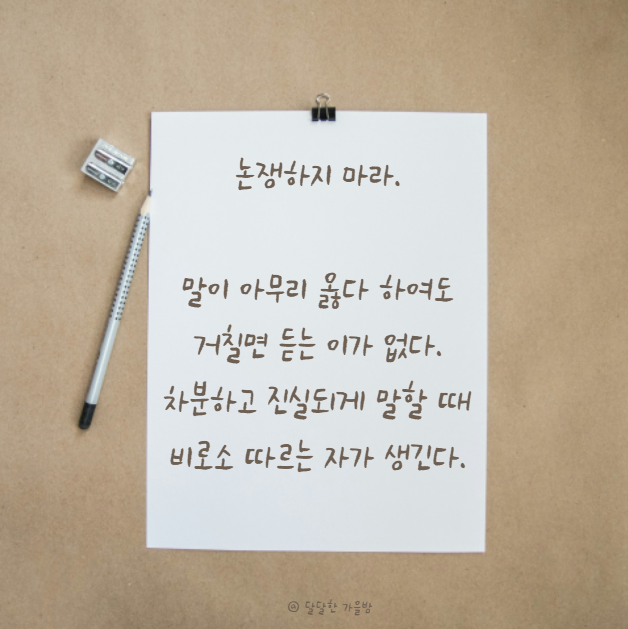 논쟁하지 마라.
말이 아무리 옳다 하여도
거칠면 듣는 이가 없다.
차분하고 진실되게 말할 때
비로소 따르는 자가 생긴다.
@ 달달한 가을밤